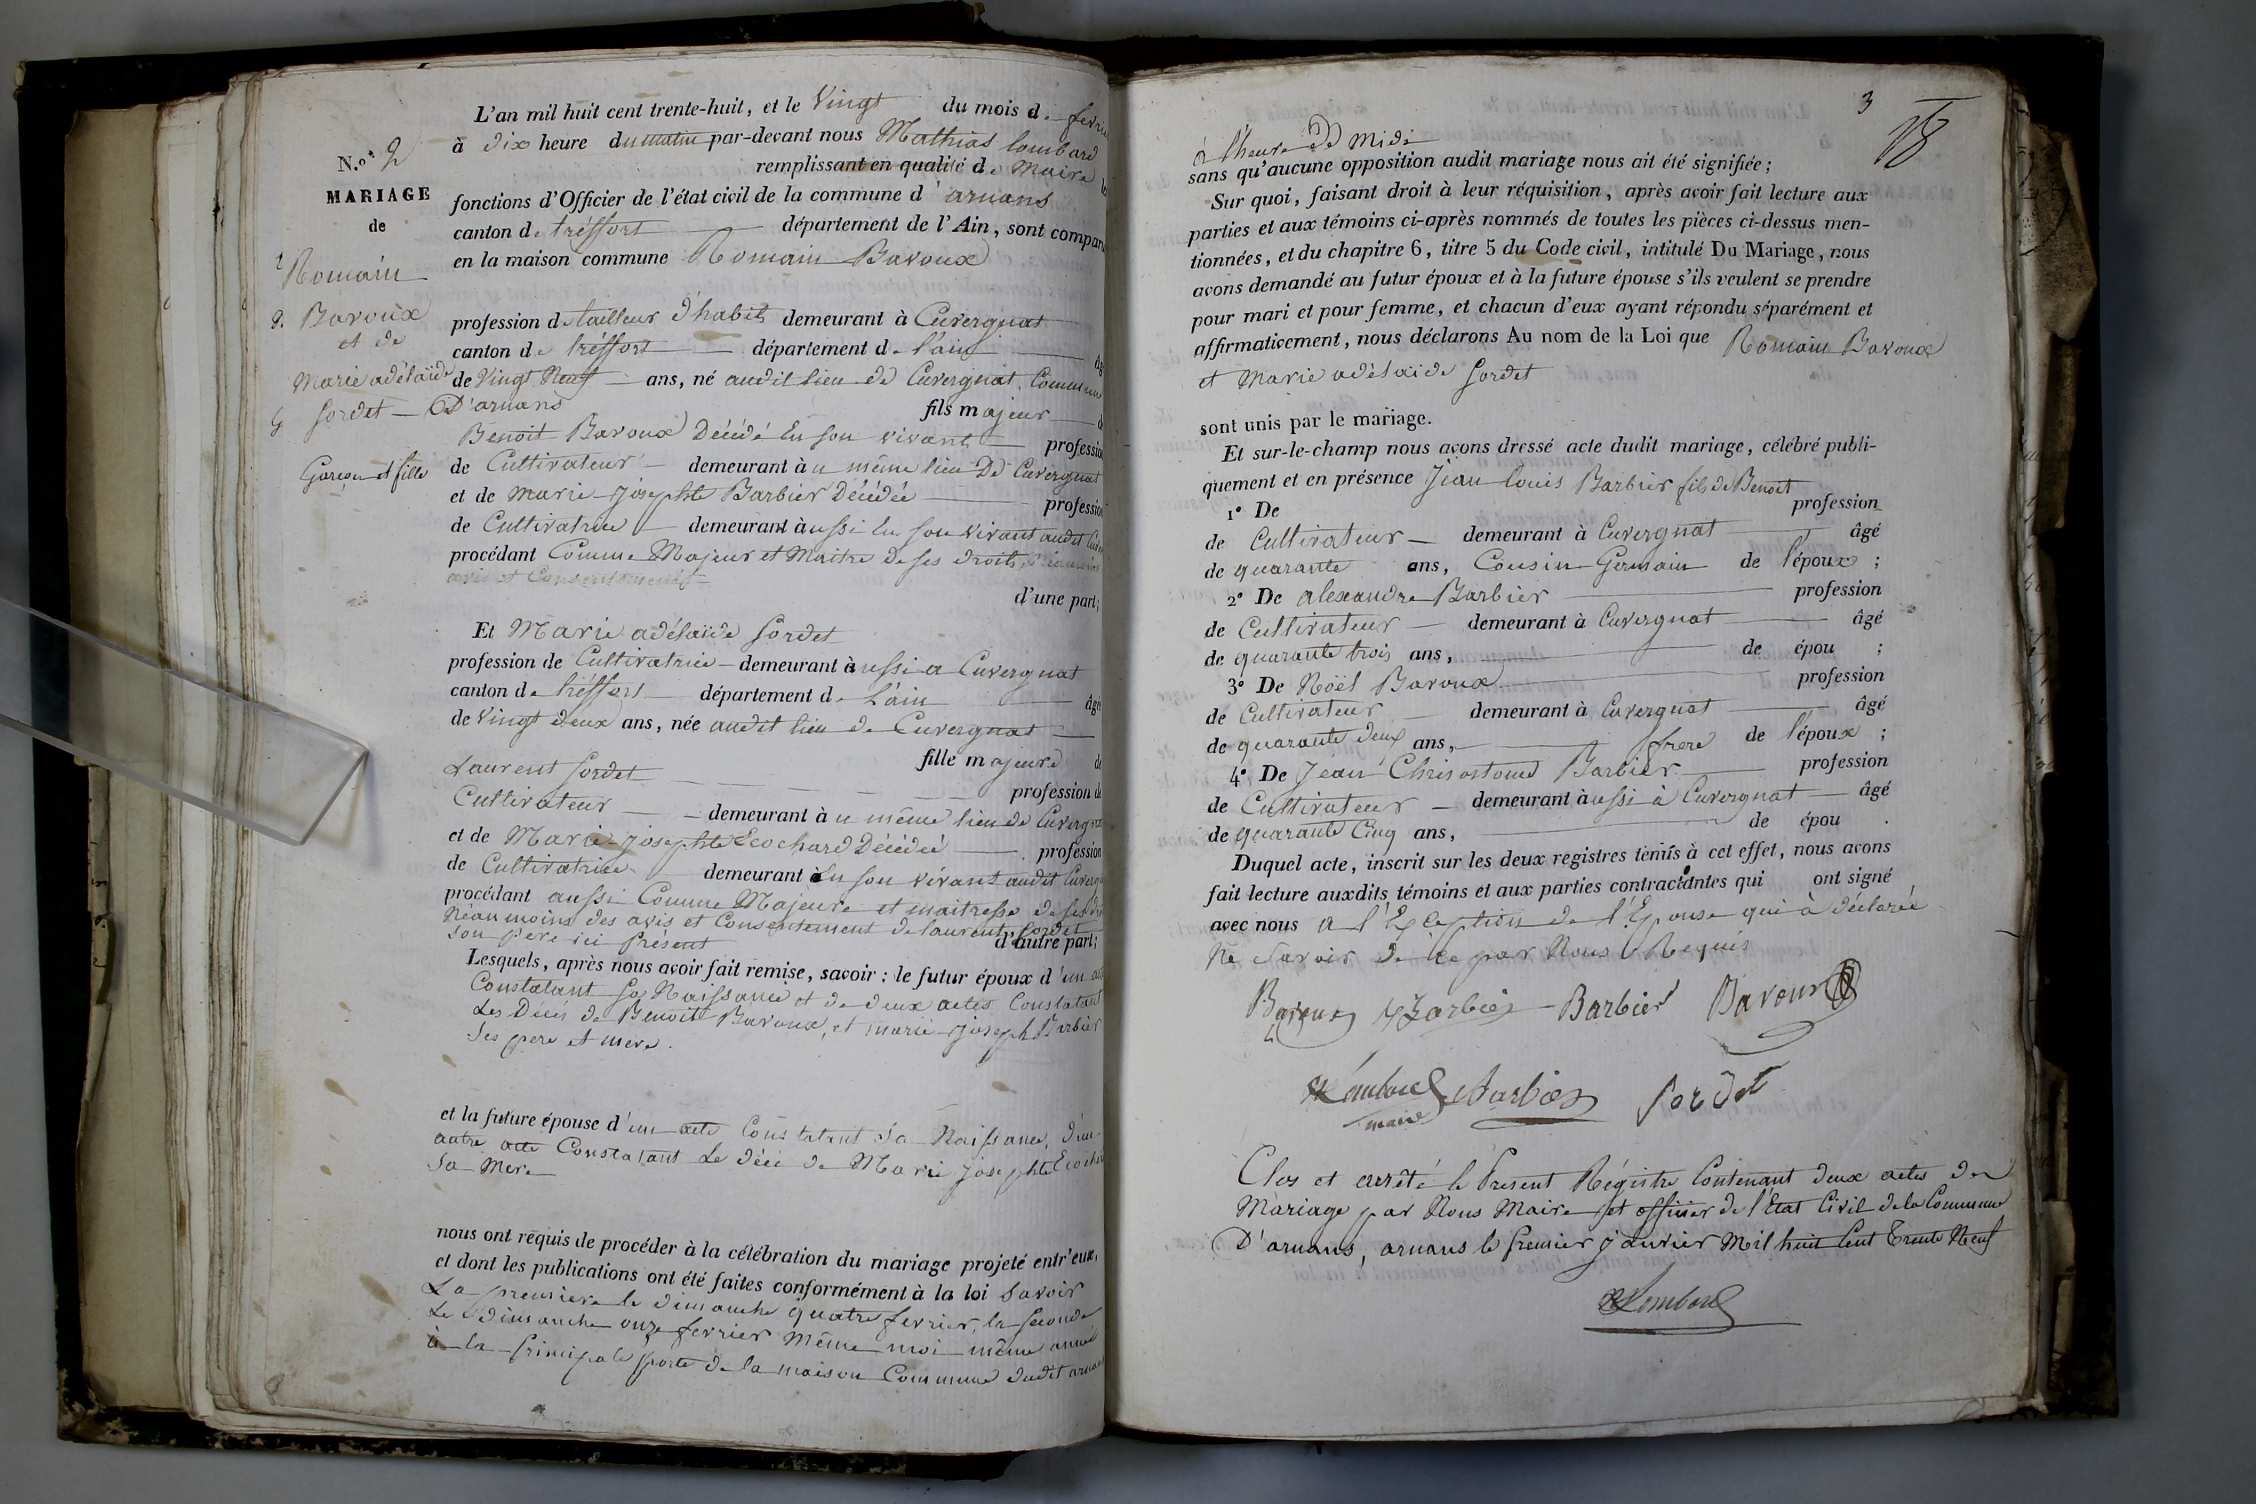 L'an mil huit cent trente-huit, et le Vingt du mois de fevrier
à dix heure du matin par-devant nous Mathias Lombard
remplissant en qualité de Maire
fonctions d'Officier de l'état civil de la commune d'arnans
canton de tréffort département de l'Ain, sont
en la maison commune Romain Bavoux
N.o 2
MARIAGE
de
Romain
Bavoux
et de
Marie adélaïde
Sordet
Garçon et fille
profession de tailleur d'habit demeurant à Cuvergnat
canton de tréffort département de l'ain
de Vingt Neuf ans, né audit lieu de Cuvergnat, Commune
D'arnans fils majeur
Benoit Bavoux Décédé En son vivant profession
de Cultivateur demeurant au même lieu De Cuvergnat
et de marie josephte Barbier Décédée profession
de Cultivatrice demeurant aussi En son vivant audit
procédant Comme Majeur et Maitre de ses droits
avis et Consentement
d'une part;
Et Marie adélaïde Sordet
profession de Cultivatrice demeurant aussi a Cuvergnat
canton de tréffort département de L'ain âgée
de Vingt deux ans, née audit lieu de Cuvergnat
fille majeure de
Laurent Sordet profession de
Cultivateur demeurant au même lieu de Cuvergnat
et de Marie josephte Ecochard Décédée profession
de Cultivatrice demeurant En son vivant audit
procédant aussi Comme Majeure et maitresse de ses
Néanmoins des avis et Consentement de laurent Sordet
son pere ici présent d'autre part;
Lesquels, après nous avoir fait remise, savoir: le futur époux d'un
Constatant sa Naissance et de deux actes Constatant
Les Décès de Benoit Bavoux, et marie joseph Barbier
ses pere et mere.
et la future épouse d'un acte Constatant sa Naissance, d'un
autre acte Constatant Le décé de Marie josephte
sa Mere
nous ont requis de procéder à la célébration du mariage projeté entr'eux,
et dont les publications ont été faites conformément à la loi Savoir
La premiere le dimanche quatre fevrier, la seconde
Le dimanche onze fevrier Même moi même année
à la principale porte de la maison Commune dudit arnans
3
à l'heure de Midi
sans qu'aucune opposition audit mariage nous ait été signifiée;
Sur quoi, faisant droit à leur réquisition, après avoir fait lecture aux
parties et aux témoins ci-après nommés de toutes les pièces ci-dessus men-
tionnées, et du chapitre 6, titre 5 du Code civil, intitulé Du Mariage, nous
avons demandé au futur époux et à la future épouse s'ils veulent se prendre
pour mari et pour femme, et chacun d'eux ayant répondu séparément et
affirmativement, nous déclarons Au nom de la Loi que Romain Bavoux
et Marie adélaïde Sordet
sont unis par le mariage.
Et sur-le-champ nous avons dressé acte dudit mariage, célébré publi-
quement et en présence Jean Louis Barbier fils de Benoit
1° De profession
de Cultivateur demeurant à Cuvergnat âgé
de quarante ans, Cousin Germain de l'époux;
2° De alexandre Barbier profession
de Cultivateur demeurant à Cuvergnat âgé
de quarante trois ans, de épou;
3° De Noël Bavoux profession
de Cultivateur demeurant à Cuvergnat âgé
de quarante deux ans, frere de l'époux;
4° De Jean Chrisostome Barbier profession
de Cultivateur demeurant aussi à Cuvergnat âgé
de quarante Cinq ans, de épou.
Duquel acte, inscrit sur les deux registres tenus à cet effet, nous avons
fait lecture auxdits témoins et aux parties contractantes qui ont signé
avec nous a l'Exception de l'Epouse qui à déclarée
Ne savoir de ce par Nous Requis
Bavoux Barbier Barbier Bavoux
Lombard Barbier Sordet
maire
Clos et arrêté le Present Régistre Contenant deux actes de
Mariage par Nous Maire et officier de l'Etat Civil de la Commune
D'arnans, arnans le premier janvier Mil huit Cent Trente Neuf
Lombard